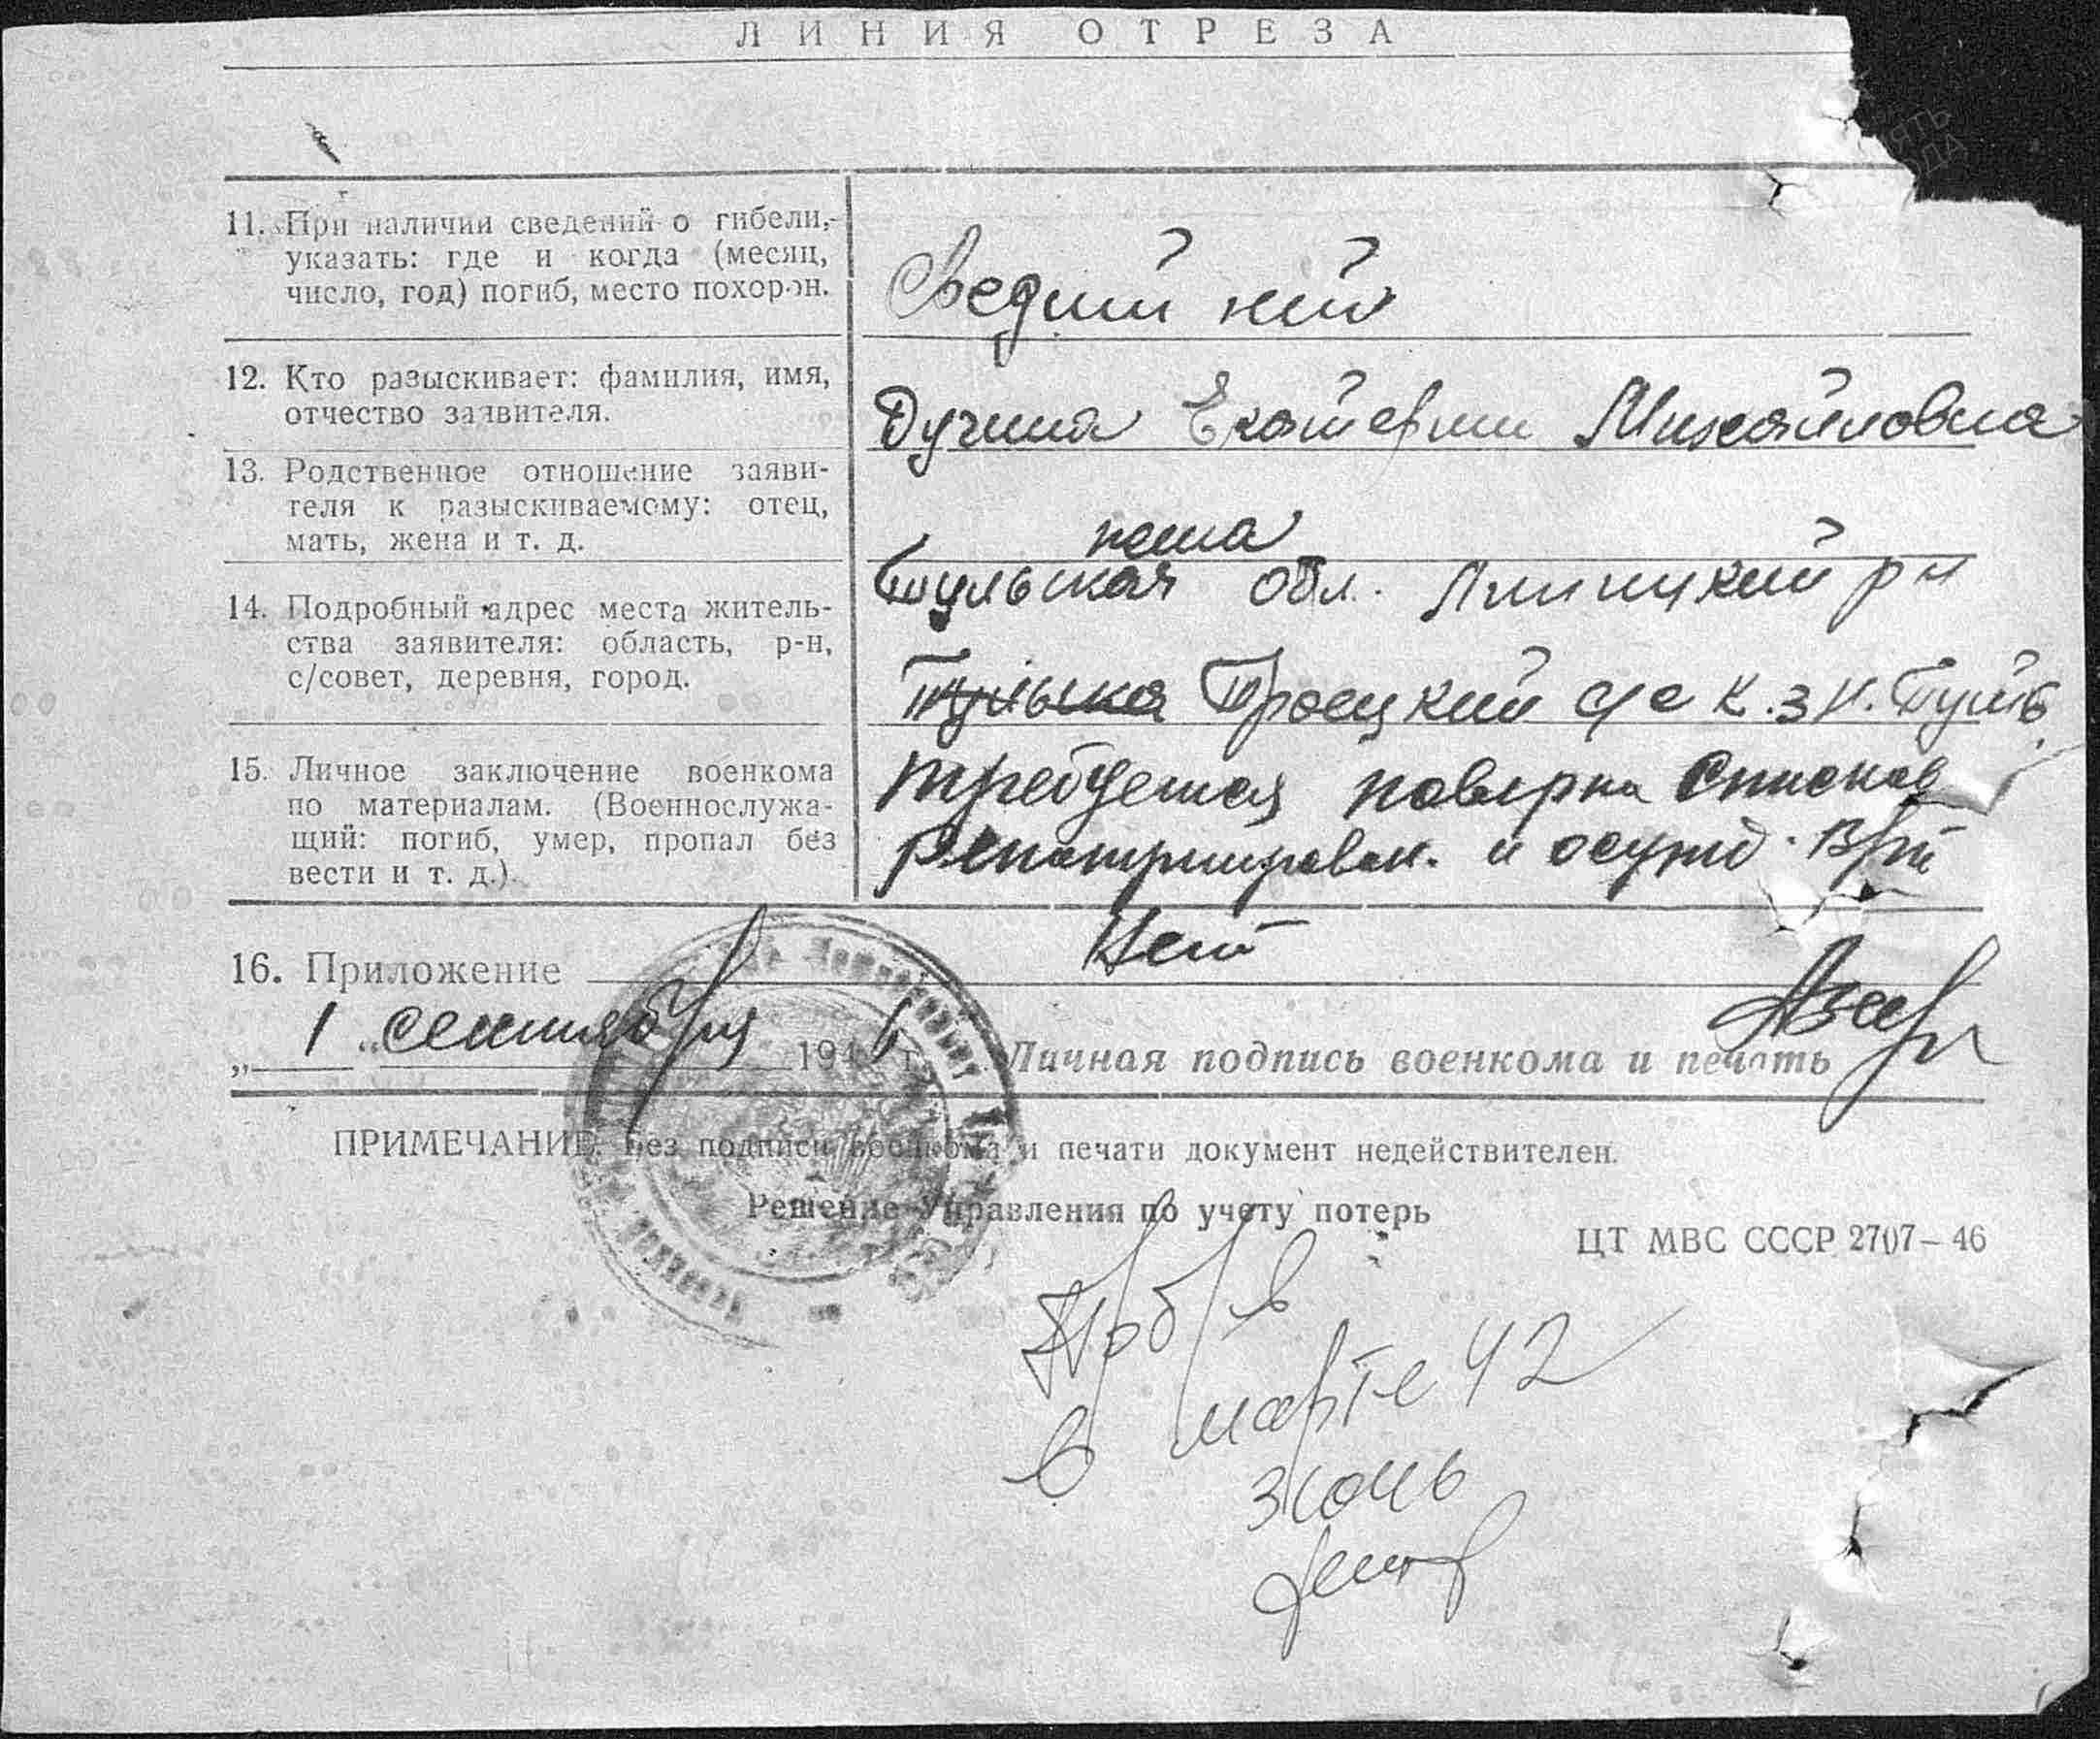 ЛИНИЯ ОТРЕЗА
11. При наличии сведений о гибели,
указать: где и когда (месяц,
число, год) погиб, место похорон.
12. Кто разыскивает: фамилия, имя,
отчество заявителя.
Дучина Екатерин Михайловна
13. Родственное отношение заяви-
теля к разыскиваемому: отец,
мать, жена и т. д.
жена
14. Подробный адрес места житель-
ства заявителя: область, р-н,
с/совет, деревня, город.
Тульская обл. Липицкий рн
Троецкий с/с к.з
15. Личное заключение военкома
по материалам. (Военнослужа-
щий: погиб, умер, пропал без
вести и т. д.).
требуется поверка списков
репатриирован. и осужд. ВТ
16. Приложение Нет
„ 1 " сентября 1946 г. Личная подпись военкома и печать
ПРИМЕЧАНИЕ. Без подписи военкома и печати документ недействителен.
Решение Управления по учету потерь
ЦТ МВС СССР 2707—46
Пр б/в
в марте 42